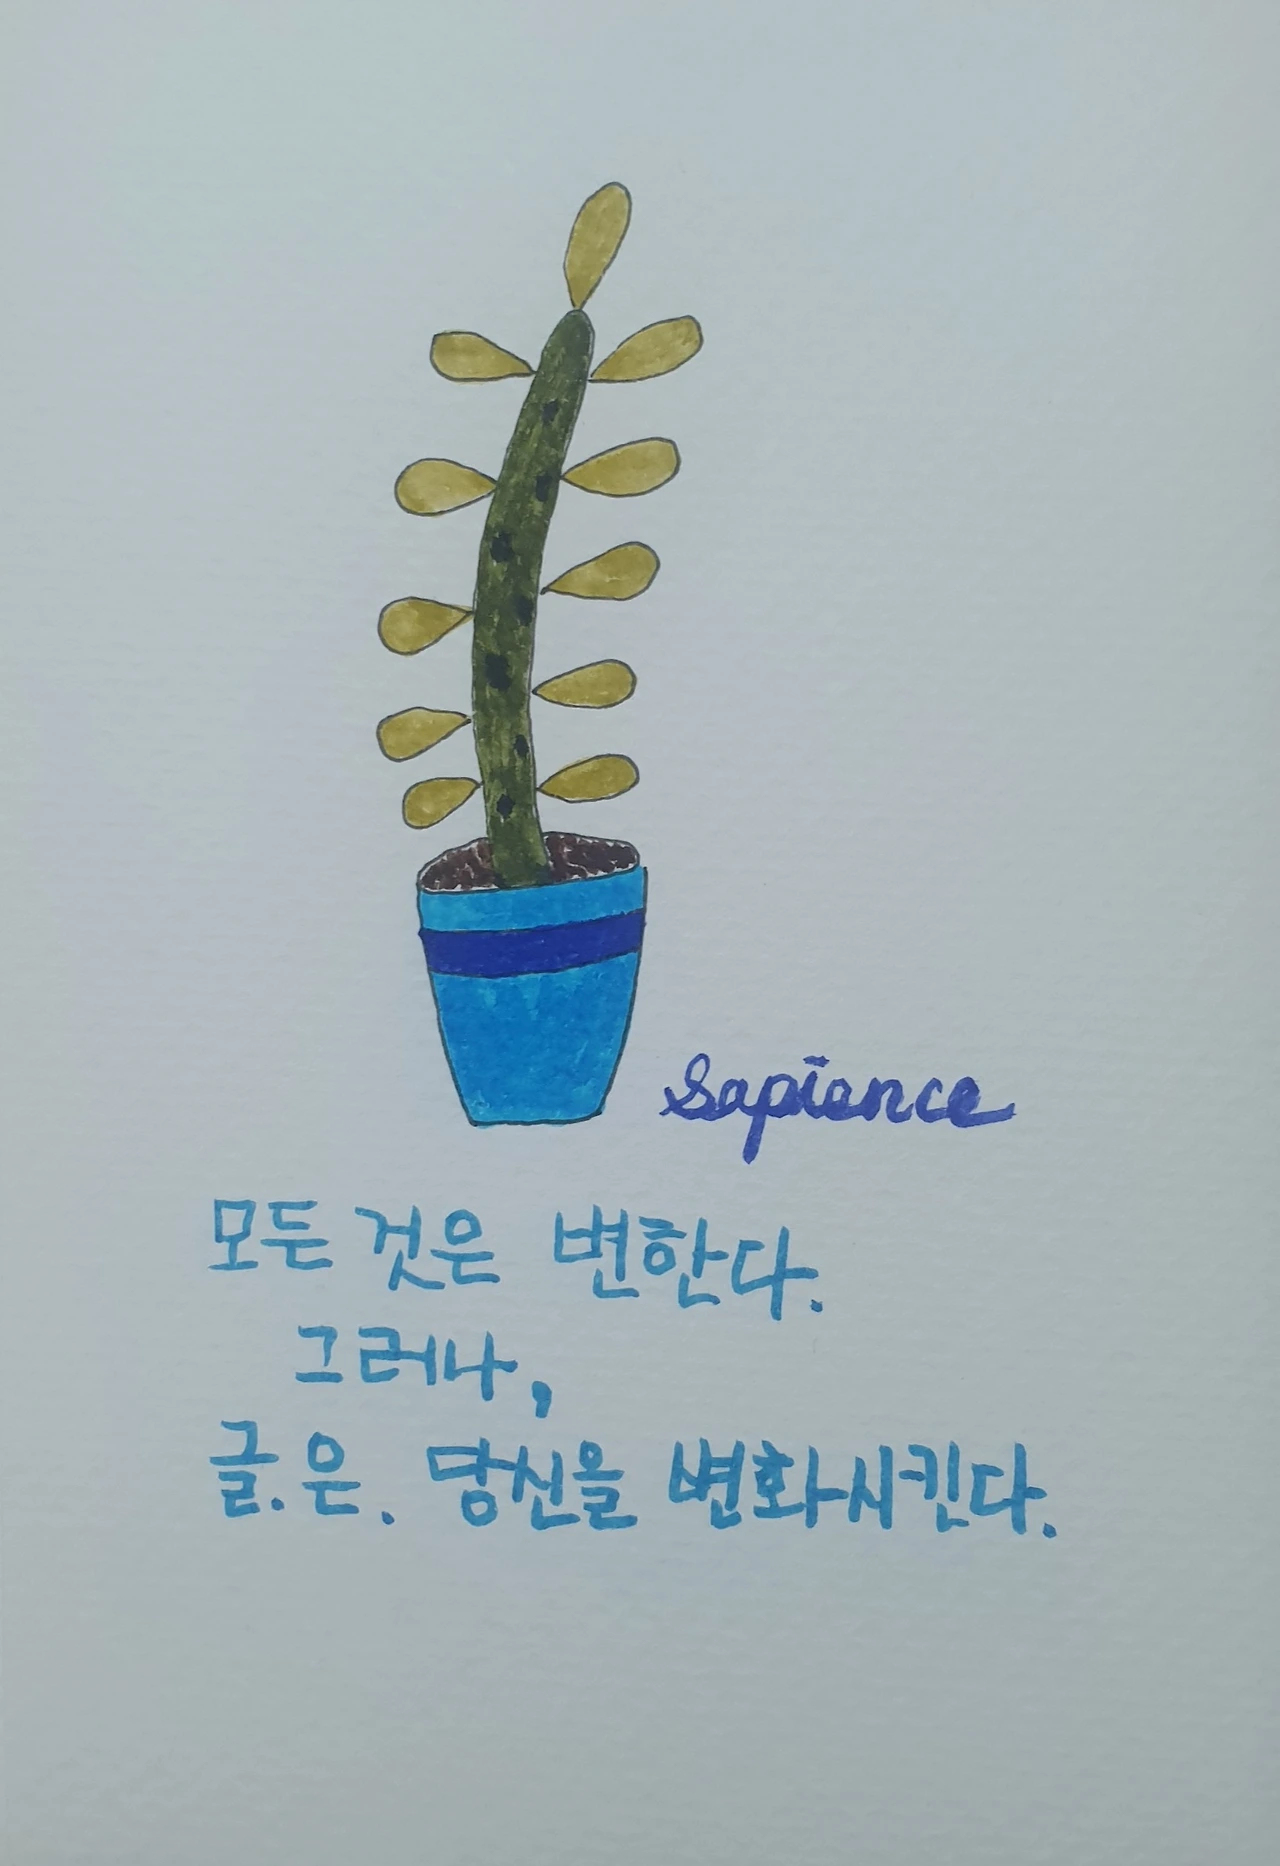 sapience
모든 것은 변한다.
그러나,
글.은. 당신을 변화시킨다.